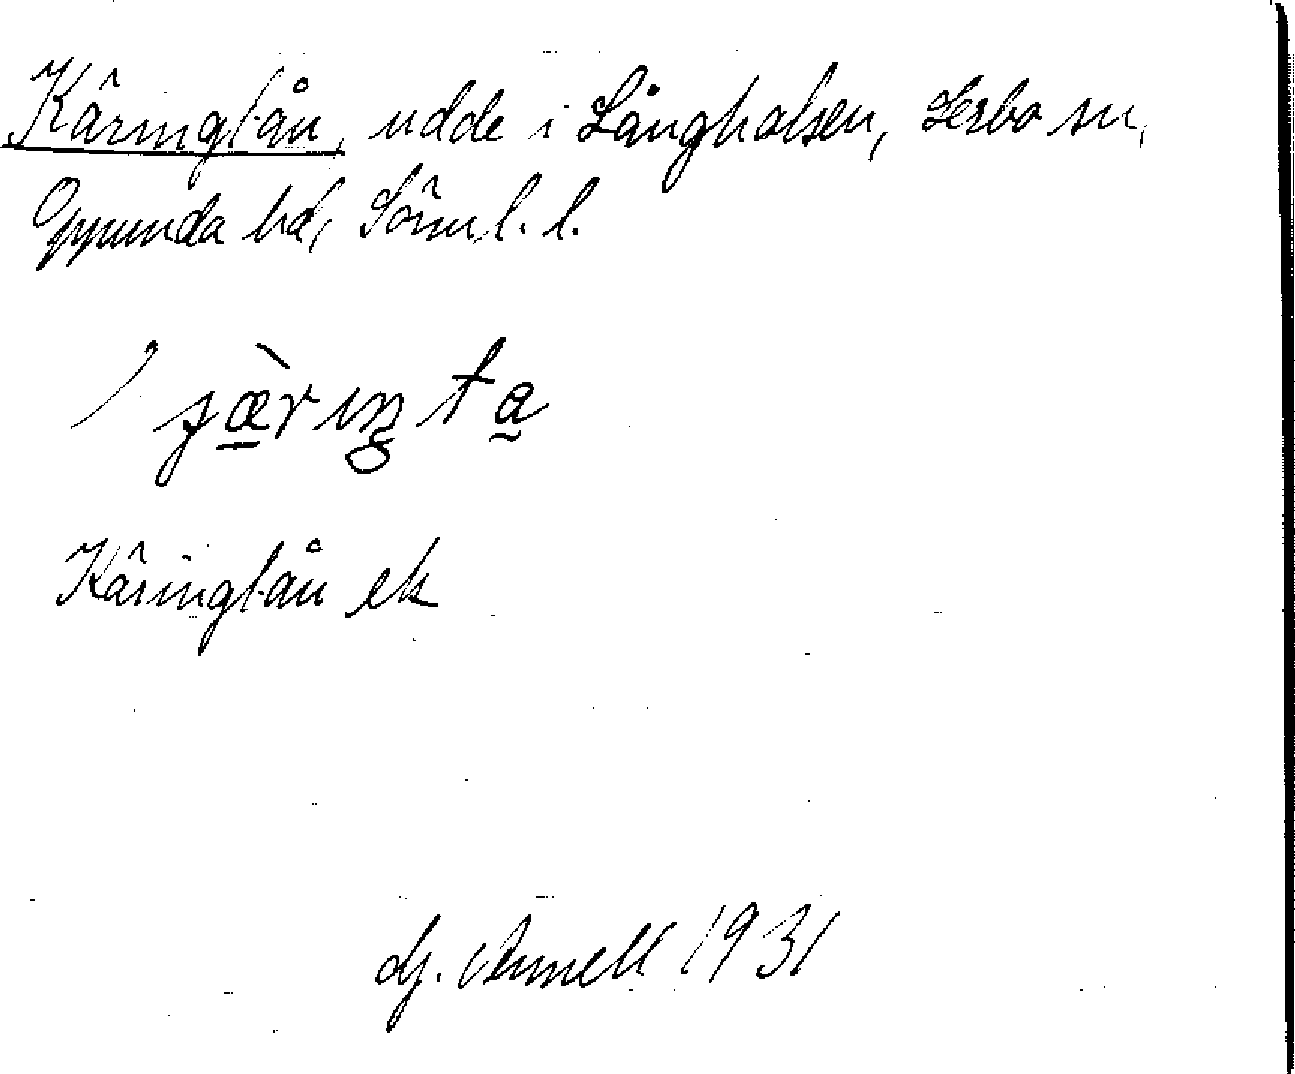 Käringtån, udde i Långhalsen, Lerbo sn,
Oppunda hd, Sörml. l.
Käringtån ek
Hj. Annell 1931